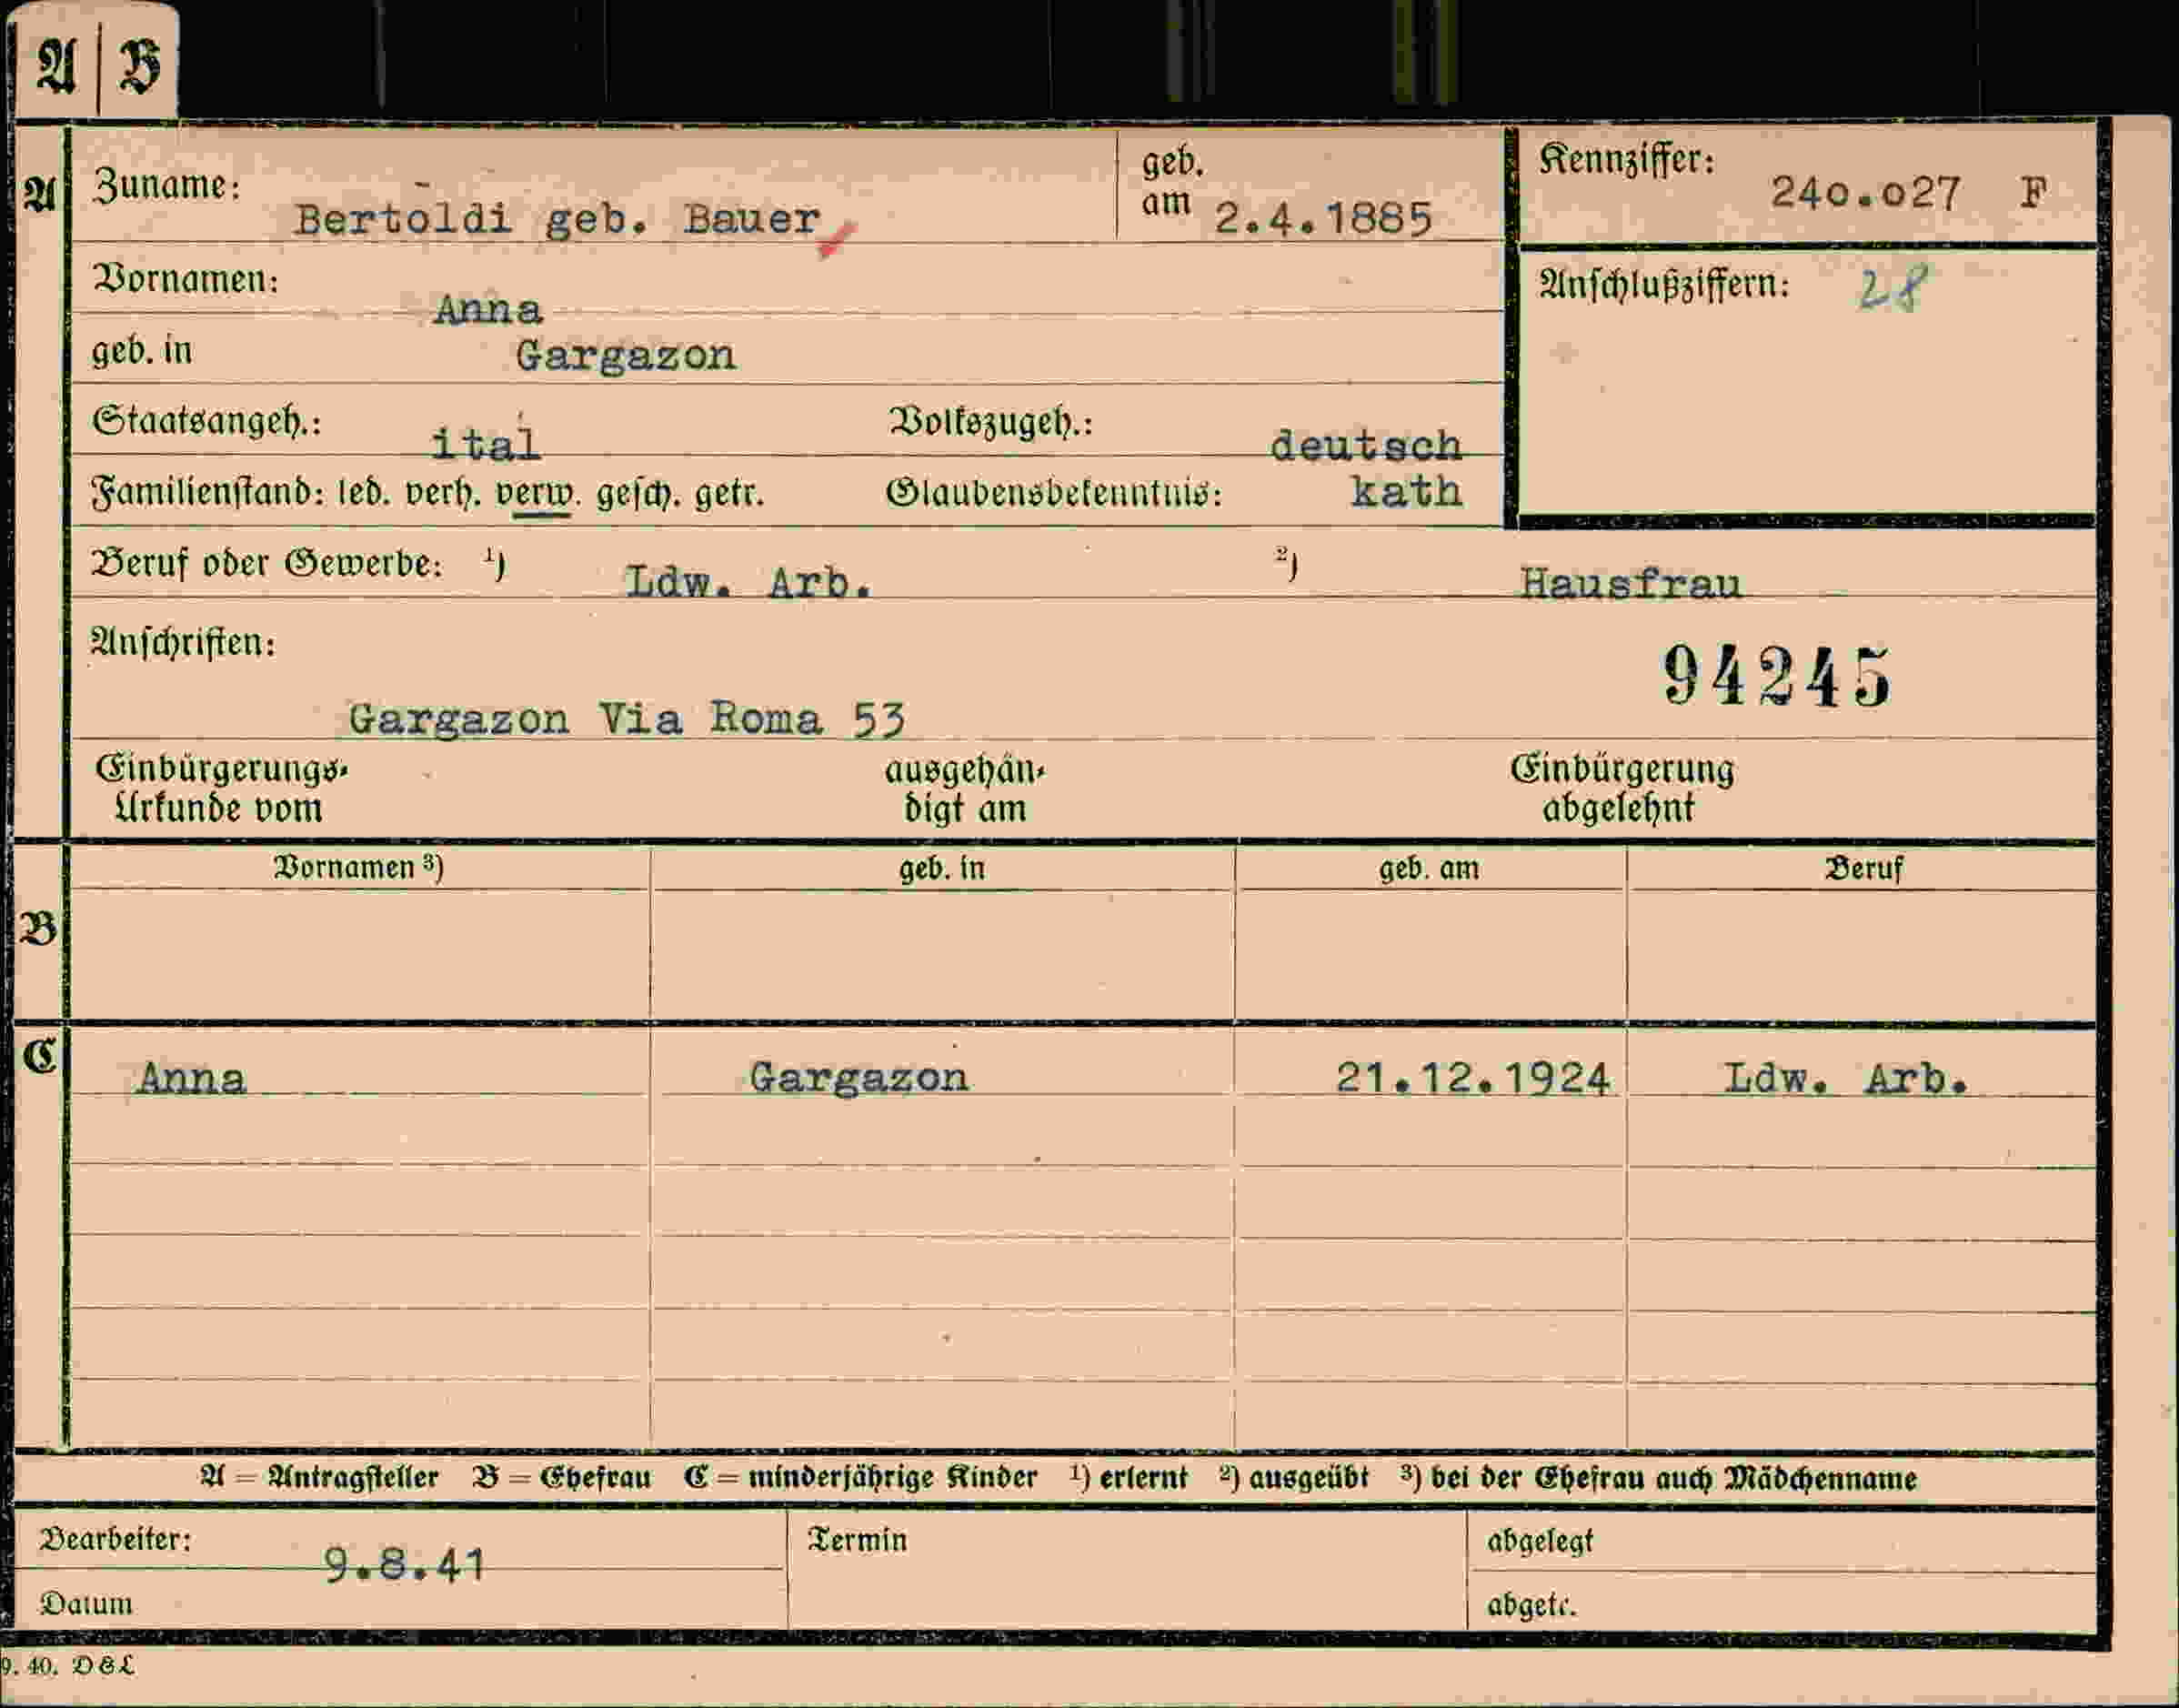 A | B
A
Zuname: Bertoldi geb. Bauer
geb. am 2.4.1885
Kennziffer: 240.027 F
Vornamen: Anna
Anschlußziffern: 28
geb. in Gargazon
Staatsangeh.: ital Volkszugeh.: deutsch
Familienstand: led. verh. verw. gesch. getr. Glaubensbekenntnis: kath
Beruf oder Gewerbe: 1) Ldw. Arb. 2) Hausfrau
Anschriften:
94245
Gargazon Via Roma 53
Einbürgerungs- ausgehän- Einbürgerung
Urkunde vom digt am abgelehnt
Vornamen 3) geb. in geb. am Beruf
B
C
Anna Gargazon 21.12.1924 Ldw. Arb.
A = Antragsteller B = Ehefrau C = minderjährige Kinder 1) erlernt 2) ausgeübt 3) bei der Ehefrau auch Mädchenname
Bearbeiter: Termin abgelegt
9.8.41
Datum abgetr.
9. 40. D&L